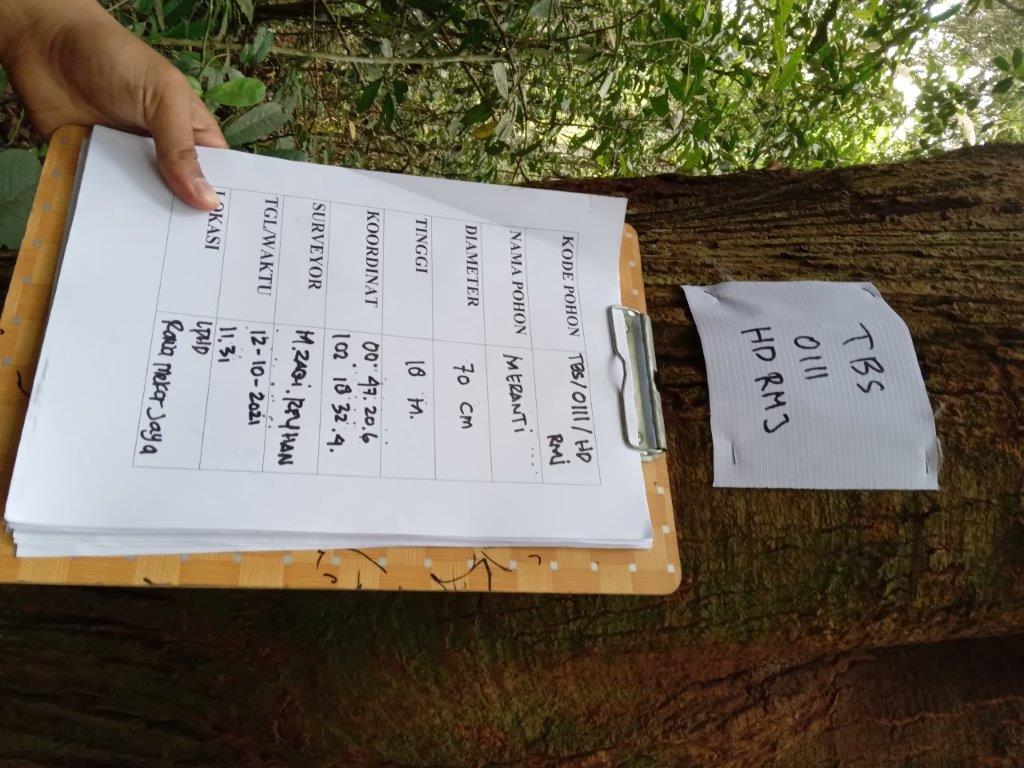 KODE POHON TBS/0111/HD
RMJ
NAMA POHON MERANTI
DIAMETER 70 CM
TINGGI 18 M.
KOORDINAT 00° 47. 20.6
102° 18 32.4.
SURVEYOR M. ZAQI. RAYHAN
TGL/WAKTU 12-10-2021
11.31
LOKASI LPHD
Rawa Mekar Jaya
TBS
0111
HD RMJ